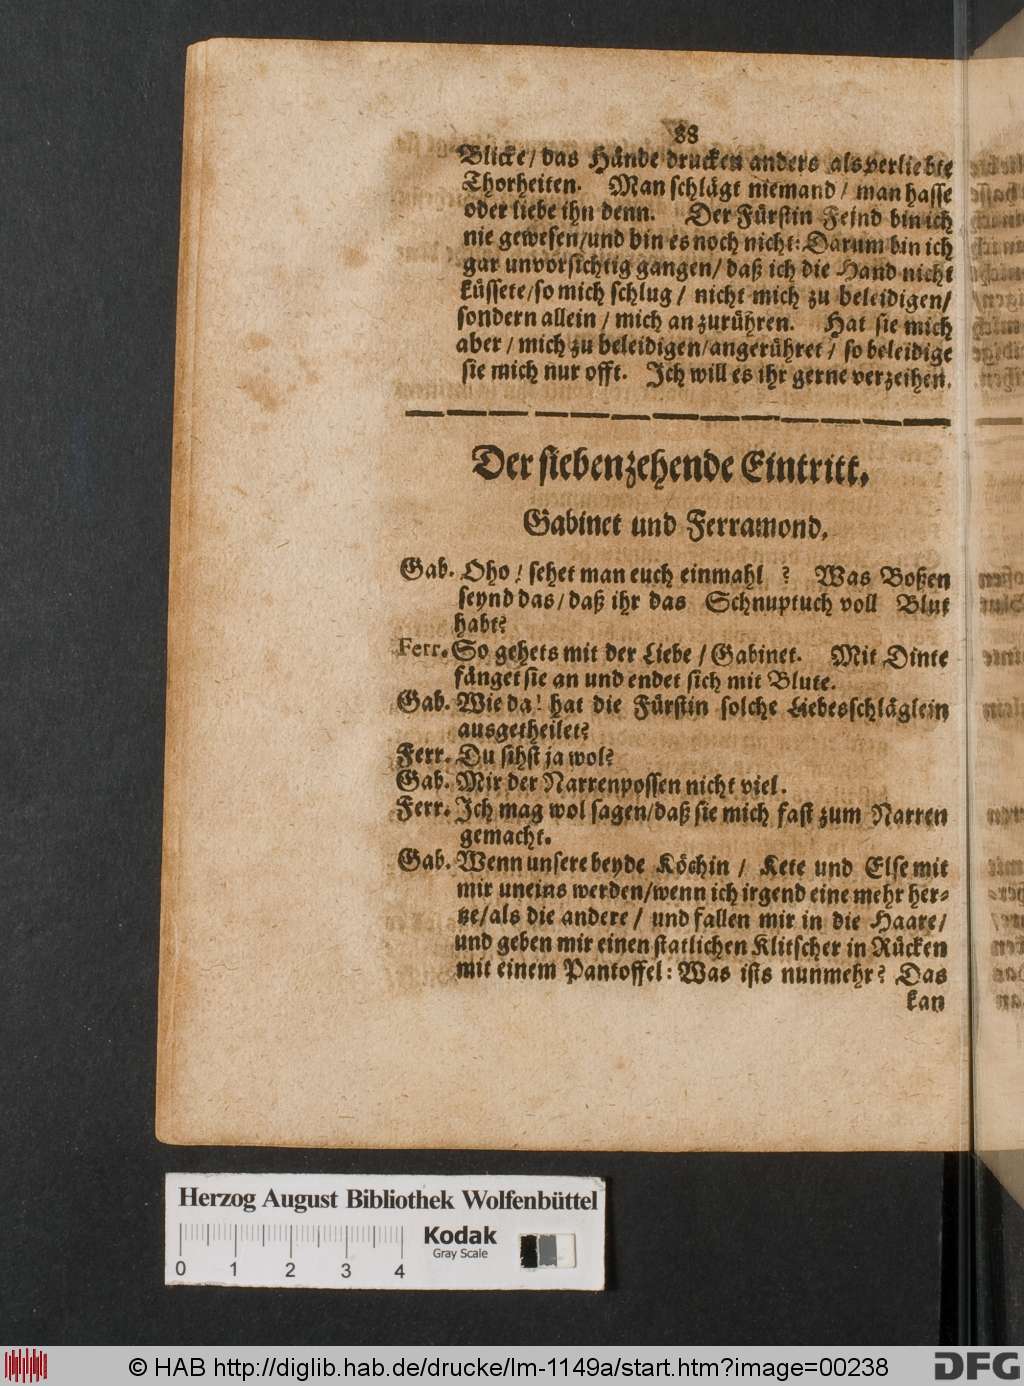 88
Blicke/ das Hände drucken anders als verliebte
Thorheiten. Man schlägt niemand/ man hasse
oder liebe ihn denn. Der Fürstin Feind bin ich
nie gewesen/und bin es noch nicht: Darum bin ich
gar unvorsichtig gangen/ daß ich die Hand nicht
küssete/so mich schlug/ nicht mich zu beleidigen/
sondern allein/ mich an zurühren. Hat sie mich
aber/ mich zu beleidigen/angerühret/ so beleidige
sie mich nur offt. Ich will es ihr gerne verzeihen.
Der siebenzehende Eintritt.
Gabinet und Ferramond.
Gab. Oho! sehet man euch einmahl ? Was Boßen
seynd das/daß ihr das Schnuptuch voll Blut
habt?
Ferr. So gehets mit der Liebe/Gabinet. Mit Dinte
fänget sie an und endet sich mit Blute.
Gab. Wie da! hat die Fürstin solche Liebesschläglein
ausgetheilet?
Ferr. Du sihst ja wol?
Gab. Mir der Narrenpossen nicht viel.
Ferr. Ich mag wol sagen/daß sie mich fast zum Narren
gemacht.
Gab. Wenn unsere beyde Köchin/ Kete und Else mit
mir uneins werden/wenn ich irgend eine mehr her-
tze/als die andere/ und fallen mir in die Haare/
und geben mir einen statlichen Klitscher in Rücken
mit einem Pantoffel: Was ists nunmehr? Das
kan
Herzog August Bibliothek Wolfenbüttel
Kodak
Gray Scale
0 1 2 3 4
© HAB http://diglib.hab.de/drucke/lm-1149a/start.htm?image=00238
DFG